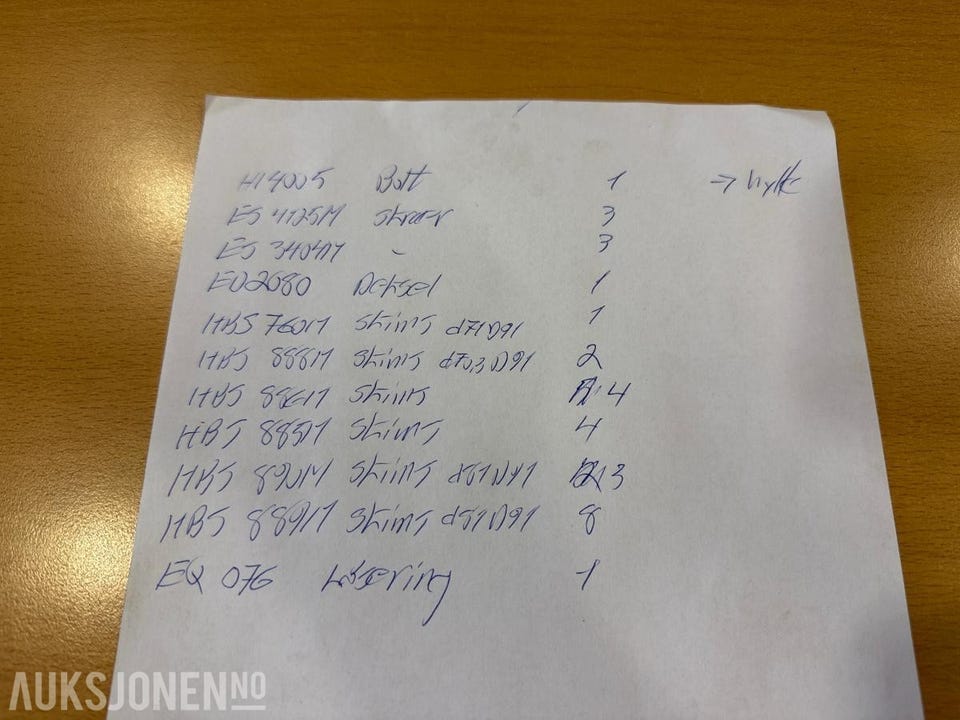 H14005 Bolt 1 → hylle
ES 4125M Skruer 3
ES 3404M - 3
ED2080 Deksel 1
HBS 7601M Skims d71D91 1
HBS 888M Skims d70,3D91 2
HBS 886M Skims 4
HBS 885M Skims 4
HBS 890M Skims d81D91 3
HBS 889M Skims d81D91 8
EQ 076 Låsering 1
AUKSJONEN NO